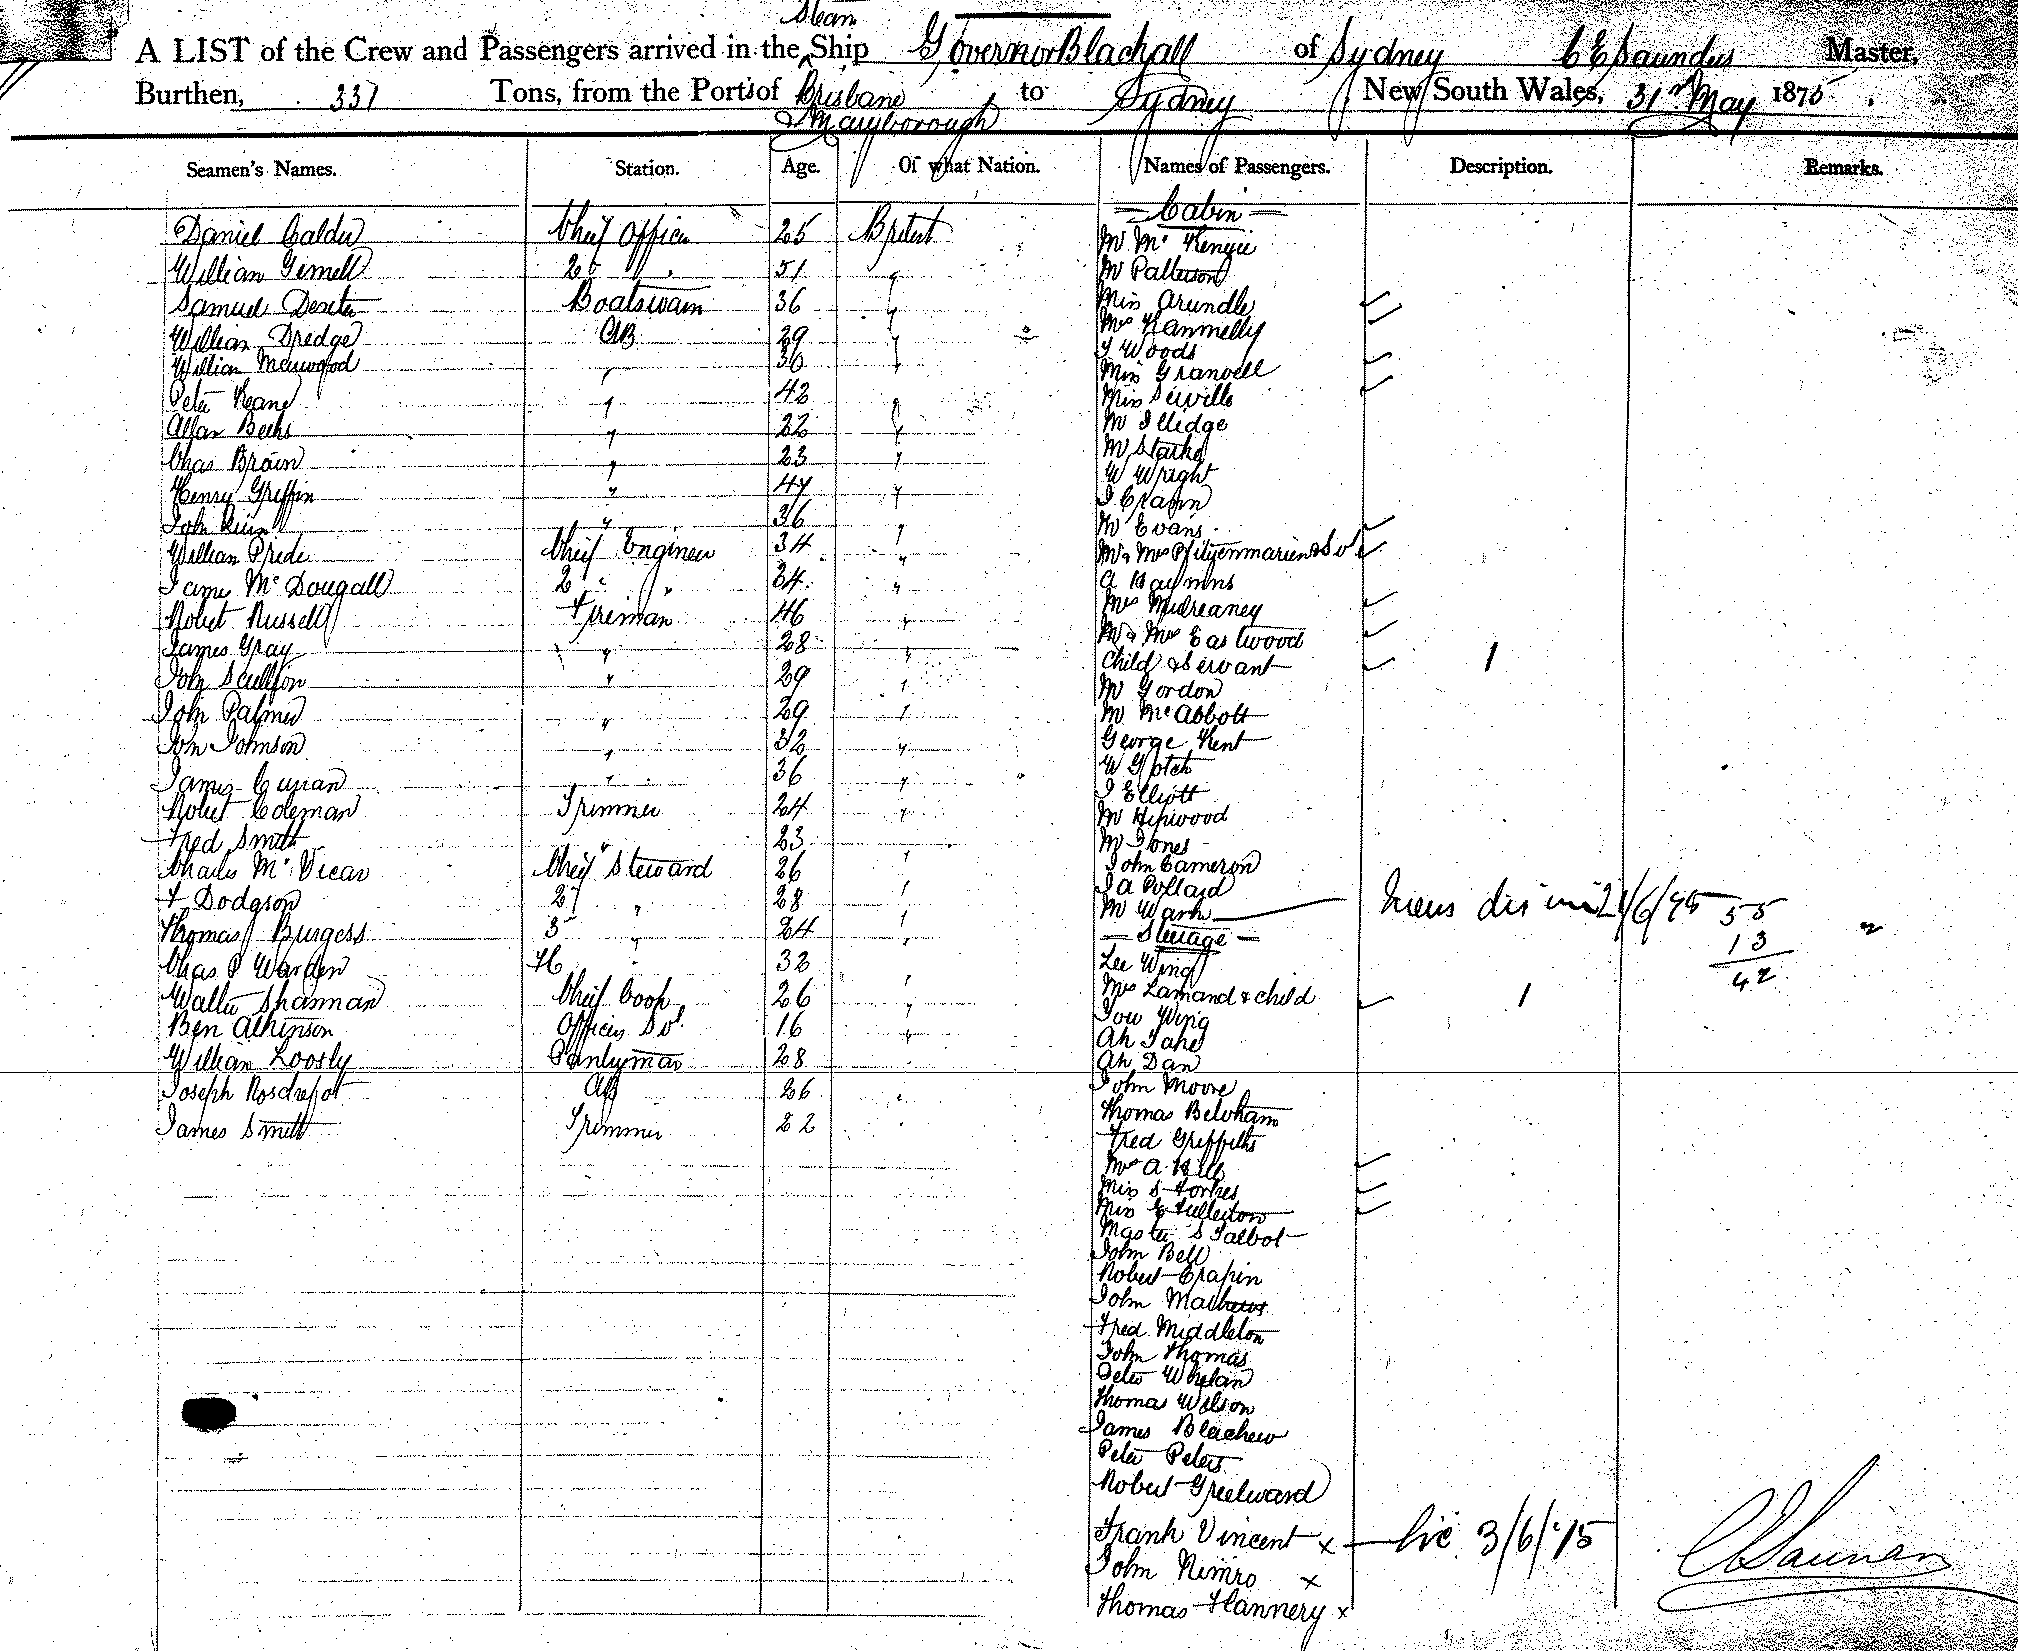 Steam
A LIST of the Crew and Passengers arrived in the Ship Governor Blackall of Sydney C E Saunders Master,
Burthen, 337 Tons, from the Ports of Brisbane to Sydney New South Wales, 31st May 1875
& Maryborough
Seamen's Names. Station. Age. Of what Nation. Names of Passengers. Description. Remarks.
Cabin
Daniel Calder Chief Officer 25 British Mr McKenzie
William Gemell 2d " 51 " Mr Patterson
Samuel Dexter Boatswain 36 " Miss Arundle
William Dredge AB 29 " Mrs Kannelly
J Woods
William Marwood " 36 " Miss Granvell
Peter Keane " 42 " Miss Seville
Allan Beeks " 22 " Mr Illidge
Chas Brain " 23 " Mr Starke
W Wright
Henry Griffin " 47 " J Crapin
John " 36 " Mr Evans
William Pride Chief Engineer 34 " Mr & Mrs & Svt
James McDougall 2 " " 34 " A
Robert Russell Fireman 46 " Mrs Mulreaney
James Gray " 28 " Mr & Mrs Eastwood
Child & Servant 1
John Scullion " 29 " Mr Gordon
John Palmer " 29 " Mr McAbbott
Jon Johnson " 32 " George Kent
W Gotch
James Curran " 36 " J Elliott
Robert Coleman Trimmer 24 " Mr Hipwood
Fred Smith " 23 Mr Jones
Charles McVicar Chief Steward 26 " John Cameron
J A Pollard
F Dodgson 2 " 28 " Mr Wark
Thomas Burgess 3 " 24 " Steerage 55
13
42
Chas P Warden 4 " 32 Lee Wing
Walter Shannan Chief Cook 26 " Mrs Lamand & child 1
Ben Atkinson Officers Svt 16 " Tow Wing
Ah
William Loosly Pantryman 28 " Ah Dan
Joseph AB 26 " John Moore
James Smith Trimmer 22 " Thomas Belcham
Fred Griffiths
Mrs A Hill
Miss S Forbes
Miss E Fullerton
Master S Talbot
John Bell
Robert Crapin
John Mathews
Fred Middleton
John Thomas
Peter Whelan
Thomas Wilson
James
Peter Peters
Robert
Frank Vincent x 3/6/75
John Nimro x
Thomas Flannery x
C E Saunders